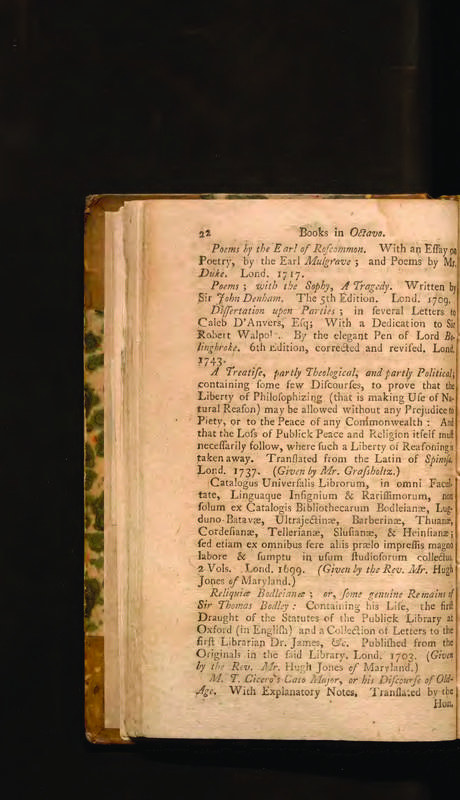 22 Books in Octavo.
Poems by the Earl of Roſcommon. With an Eſſay on
Poetry, by the Earl Mulgrave ; and Poems by Mr.
Duke. Lond. 1717.
Poems ; with the Sophy, A Tragedy. Written by
Sir John Denham. The 5th Edition. Lond. 1709.
Diſſertation upon Parties ; in ſeveral Letters to
Caleb D'Anvers, Eſq; With a Dedication to Sir
Robert Walpol. By the elegant Pen of Lord Bo-
lingbroke. 6th Edition, corrected and reviſed, Lond.
1743.
A Treatiſe, partly Theological, and partly Political,
containing ſome few Diſcourſes, to prove that the
Liberty of Philoſophizing (that is making Uſe of Na-
tural Reaſon) may be allowed without any Prejudice to
Piety, or to the Peace of any Commonwealth : And
that the Loſs of Publick Peace and Religion itſelf muſt
neceſſarily follow, where ſuch a Liberty of Reaſoning is
taken away. Tranſlated from the Latin of
Lond. 1737. (Given by Mr. Graſsholtz.)
Catalogus Univerſalis Librorum, in omni Facul-
tate, Linguaque Inſignium & Rariſſimorum, non
ſolum ex Catalogis Bibliothecarum Bodleianæ, Lug-
duno-Batavæ, Ultrajectinæ, Barberinæ, Thuanæ,
Cordeſianæ, Tellerianæ, Sluſianæ, & Heinſianæ ;
ſed etiam ex omnibus fere aliis prælo impreſſis magno
labore & ſumptu in uſum ſtudioſorum collectus.
2 Vols. Lond. 1699. (Given by the Rev. Mr. Hugh
Jones of Maryland.)
Reliquiæ Bodleianæ ; or, ſome genuine Remains of
Sir Thomas Bodley : Containing his Life, the firſt
Draught of the Statutes of the Publick Library at
Oxford (in Engliſh) and a Collection of Letters to the
firſt Librarian Dr. James, &c. Publiſhed from the
Originals in the ſaid Library. Lond. 1703. (Given
by the Rev. Mr. Hugh Jones of Maryland.)
M. T. Cicero's Cato Major, or his Diſcourſe of Old-
Age. With Explanatory Notes, Tranſlated by the
Hon.